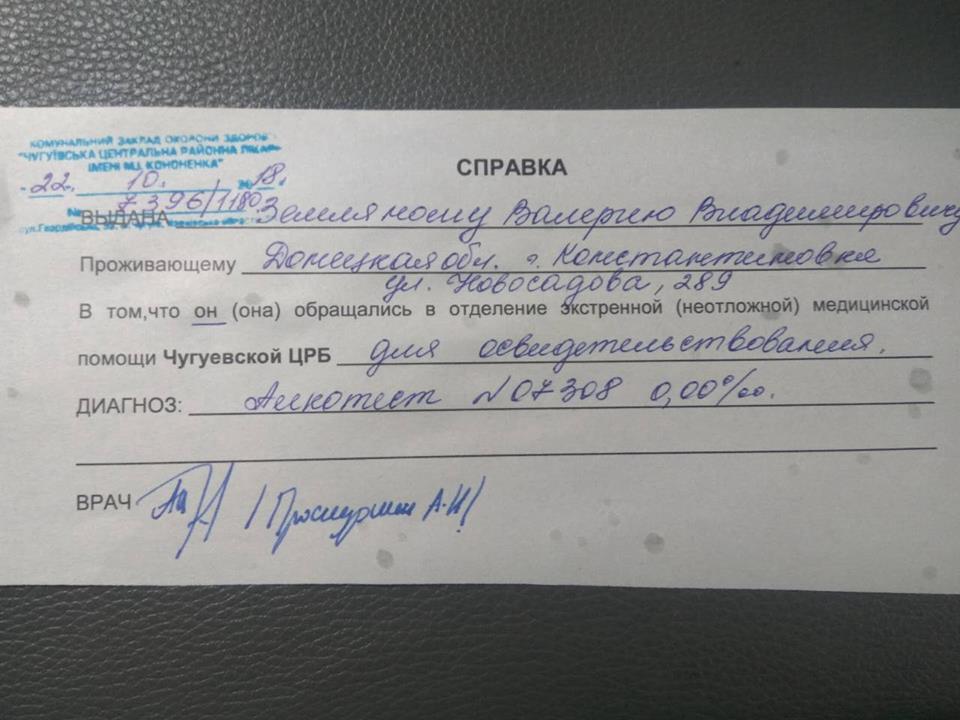 КОМУНАЛЬНИЙ ЗАКЛАД ОХОРОНИ ЗДОРОВ
"ЧУГУЇВСЬКА ЦЕНТРАЛЬНА РАЙОННА ЛІКАР
ІМЕНІ М.І. КОНОНЕНКА"
22. 10. 2018.
№ 7396/1180
СПРАВКА
ВЫДАНА Земляному Валерию Владимировичу
Проживающему Донецкая обл. г. Константиновка
ул. Новосадова, 289
В том,что он (она) обращались в отделение экстренной (неотложной) медицинской
помощи Чугуевской ЦРБ для освидетельствования.
ДИАГНОЗ: Алкотест №07308 0,00‰.
ВРАЧ А.И.